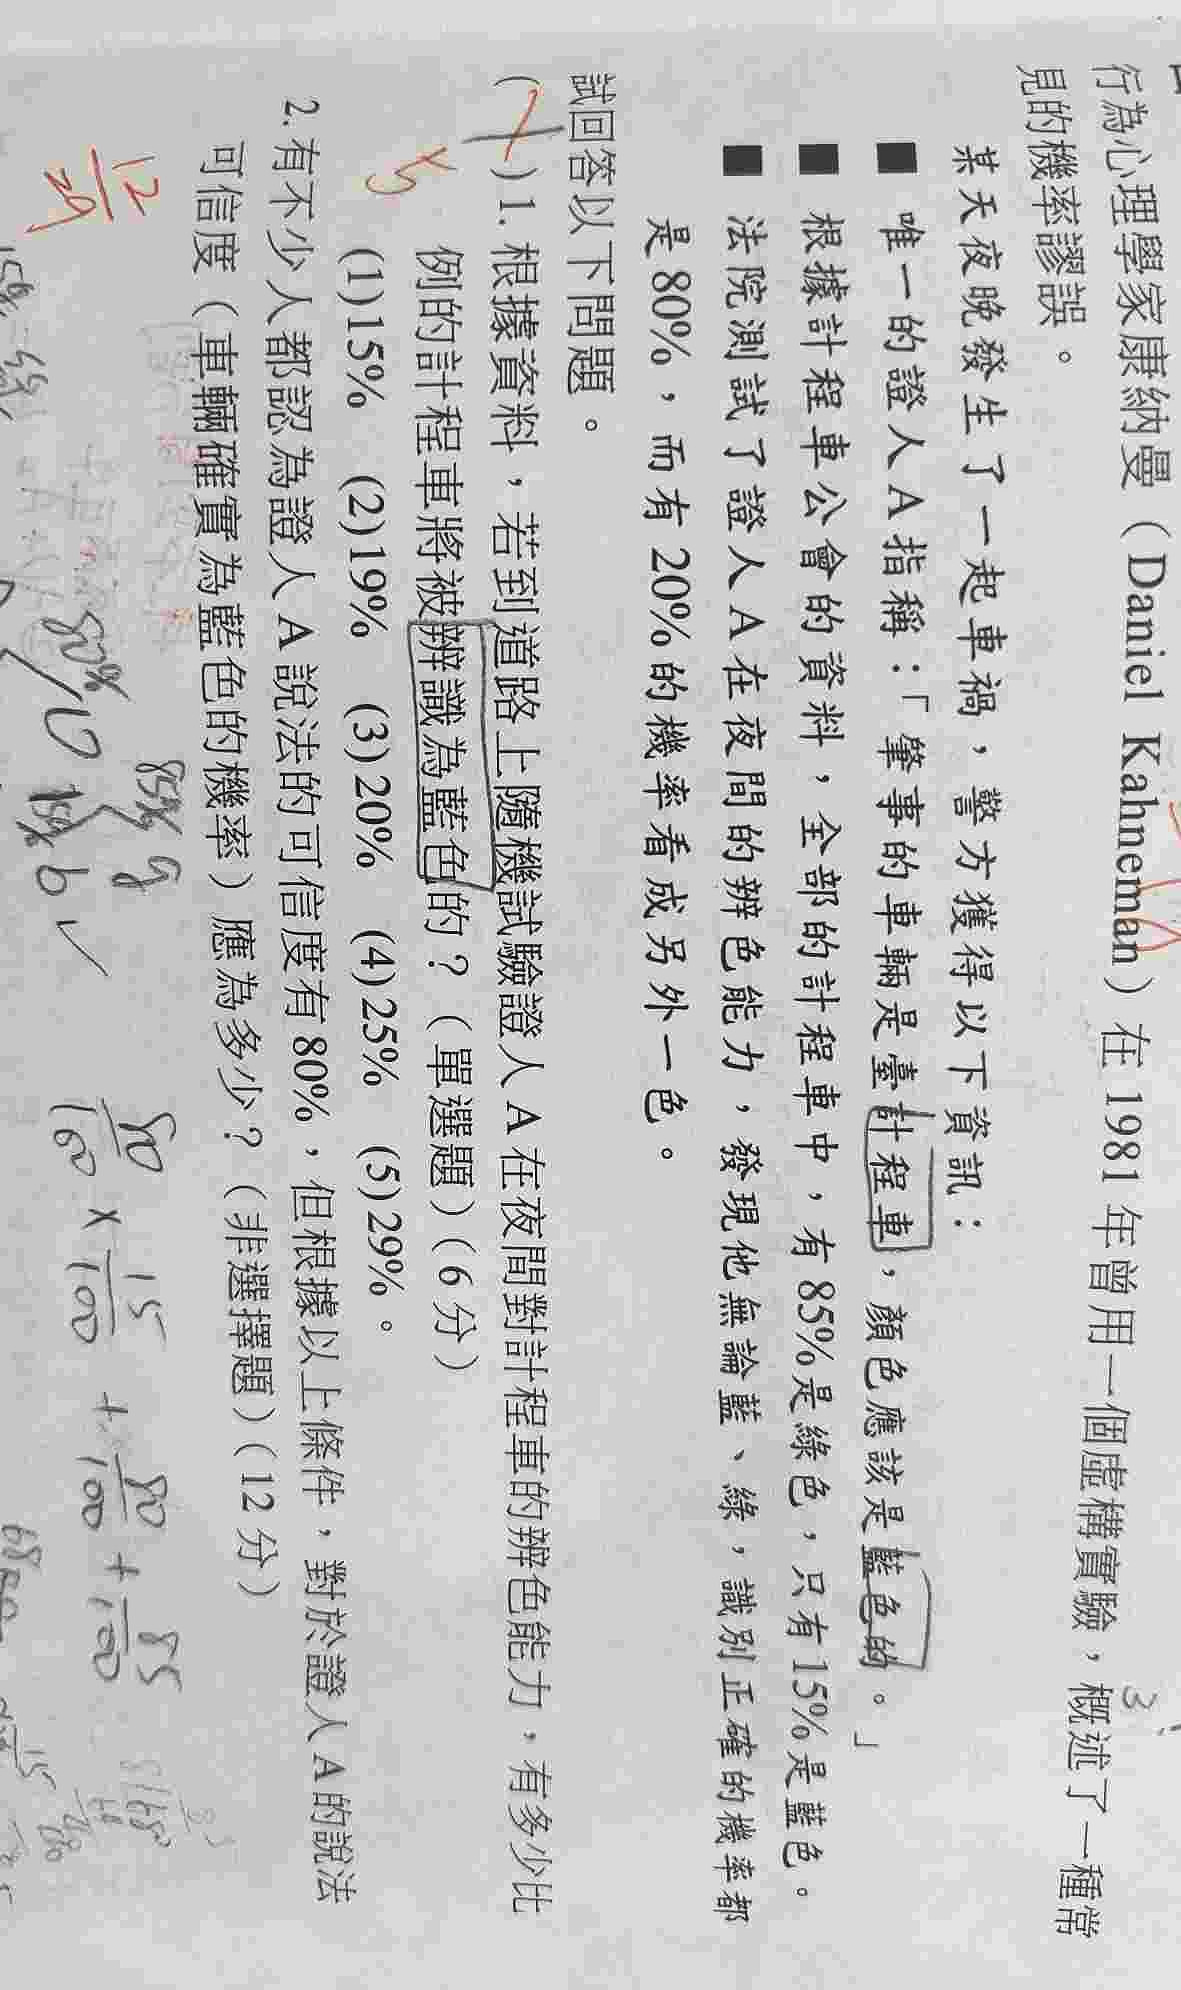 行為心理學家康納曼（Daniel Kahneman）在 1981 年曾用一個虛構實驗，概述了一種常
見的機率謬誤。
某天夜晚發生了一起車禍，警方獲得以下資訊：
■ 唯一的證人A指稱：「肇事的車輛是臺計程車，顏色應該是藍色的。」
■ 根據計程車公會的資料，全部的計程車中，有85%是綠色，只有15%是藍色。
■ 法院測試了證人A在夜間的辨色能力，發現他無論藍、綠，識別正確的機率都
是80%，而有20%的機率看成另外一色。
試回答以下問題。
( )1. 根據資料，若到道路上隨機試驗證人A在夜間對計程車的辨色能力，有多少比
例的計程車將被辨識為藍色的？（單選題）（6分）
(1)15% (2)19% (3)20% (4)25% (5)29%。
2. 有不少人都認為證人A說法的可信度有80%，但根據以上條件，對於證人A的說法
可信度（車輛確實為藍色的機率）應為多少？（非選擇題）（12分）
12/29
80%
85% g
15% b
80/100 × 15/100 + 80/100 + 85/100